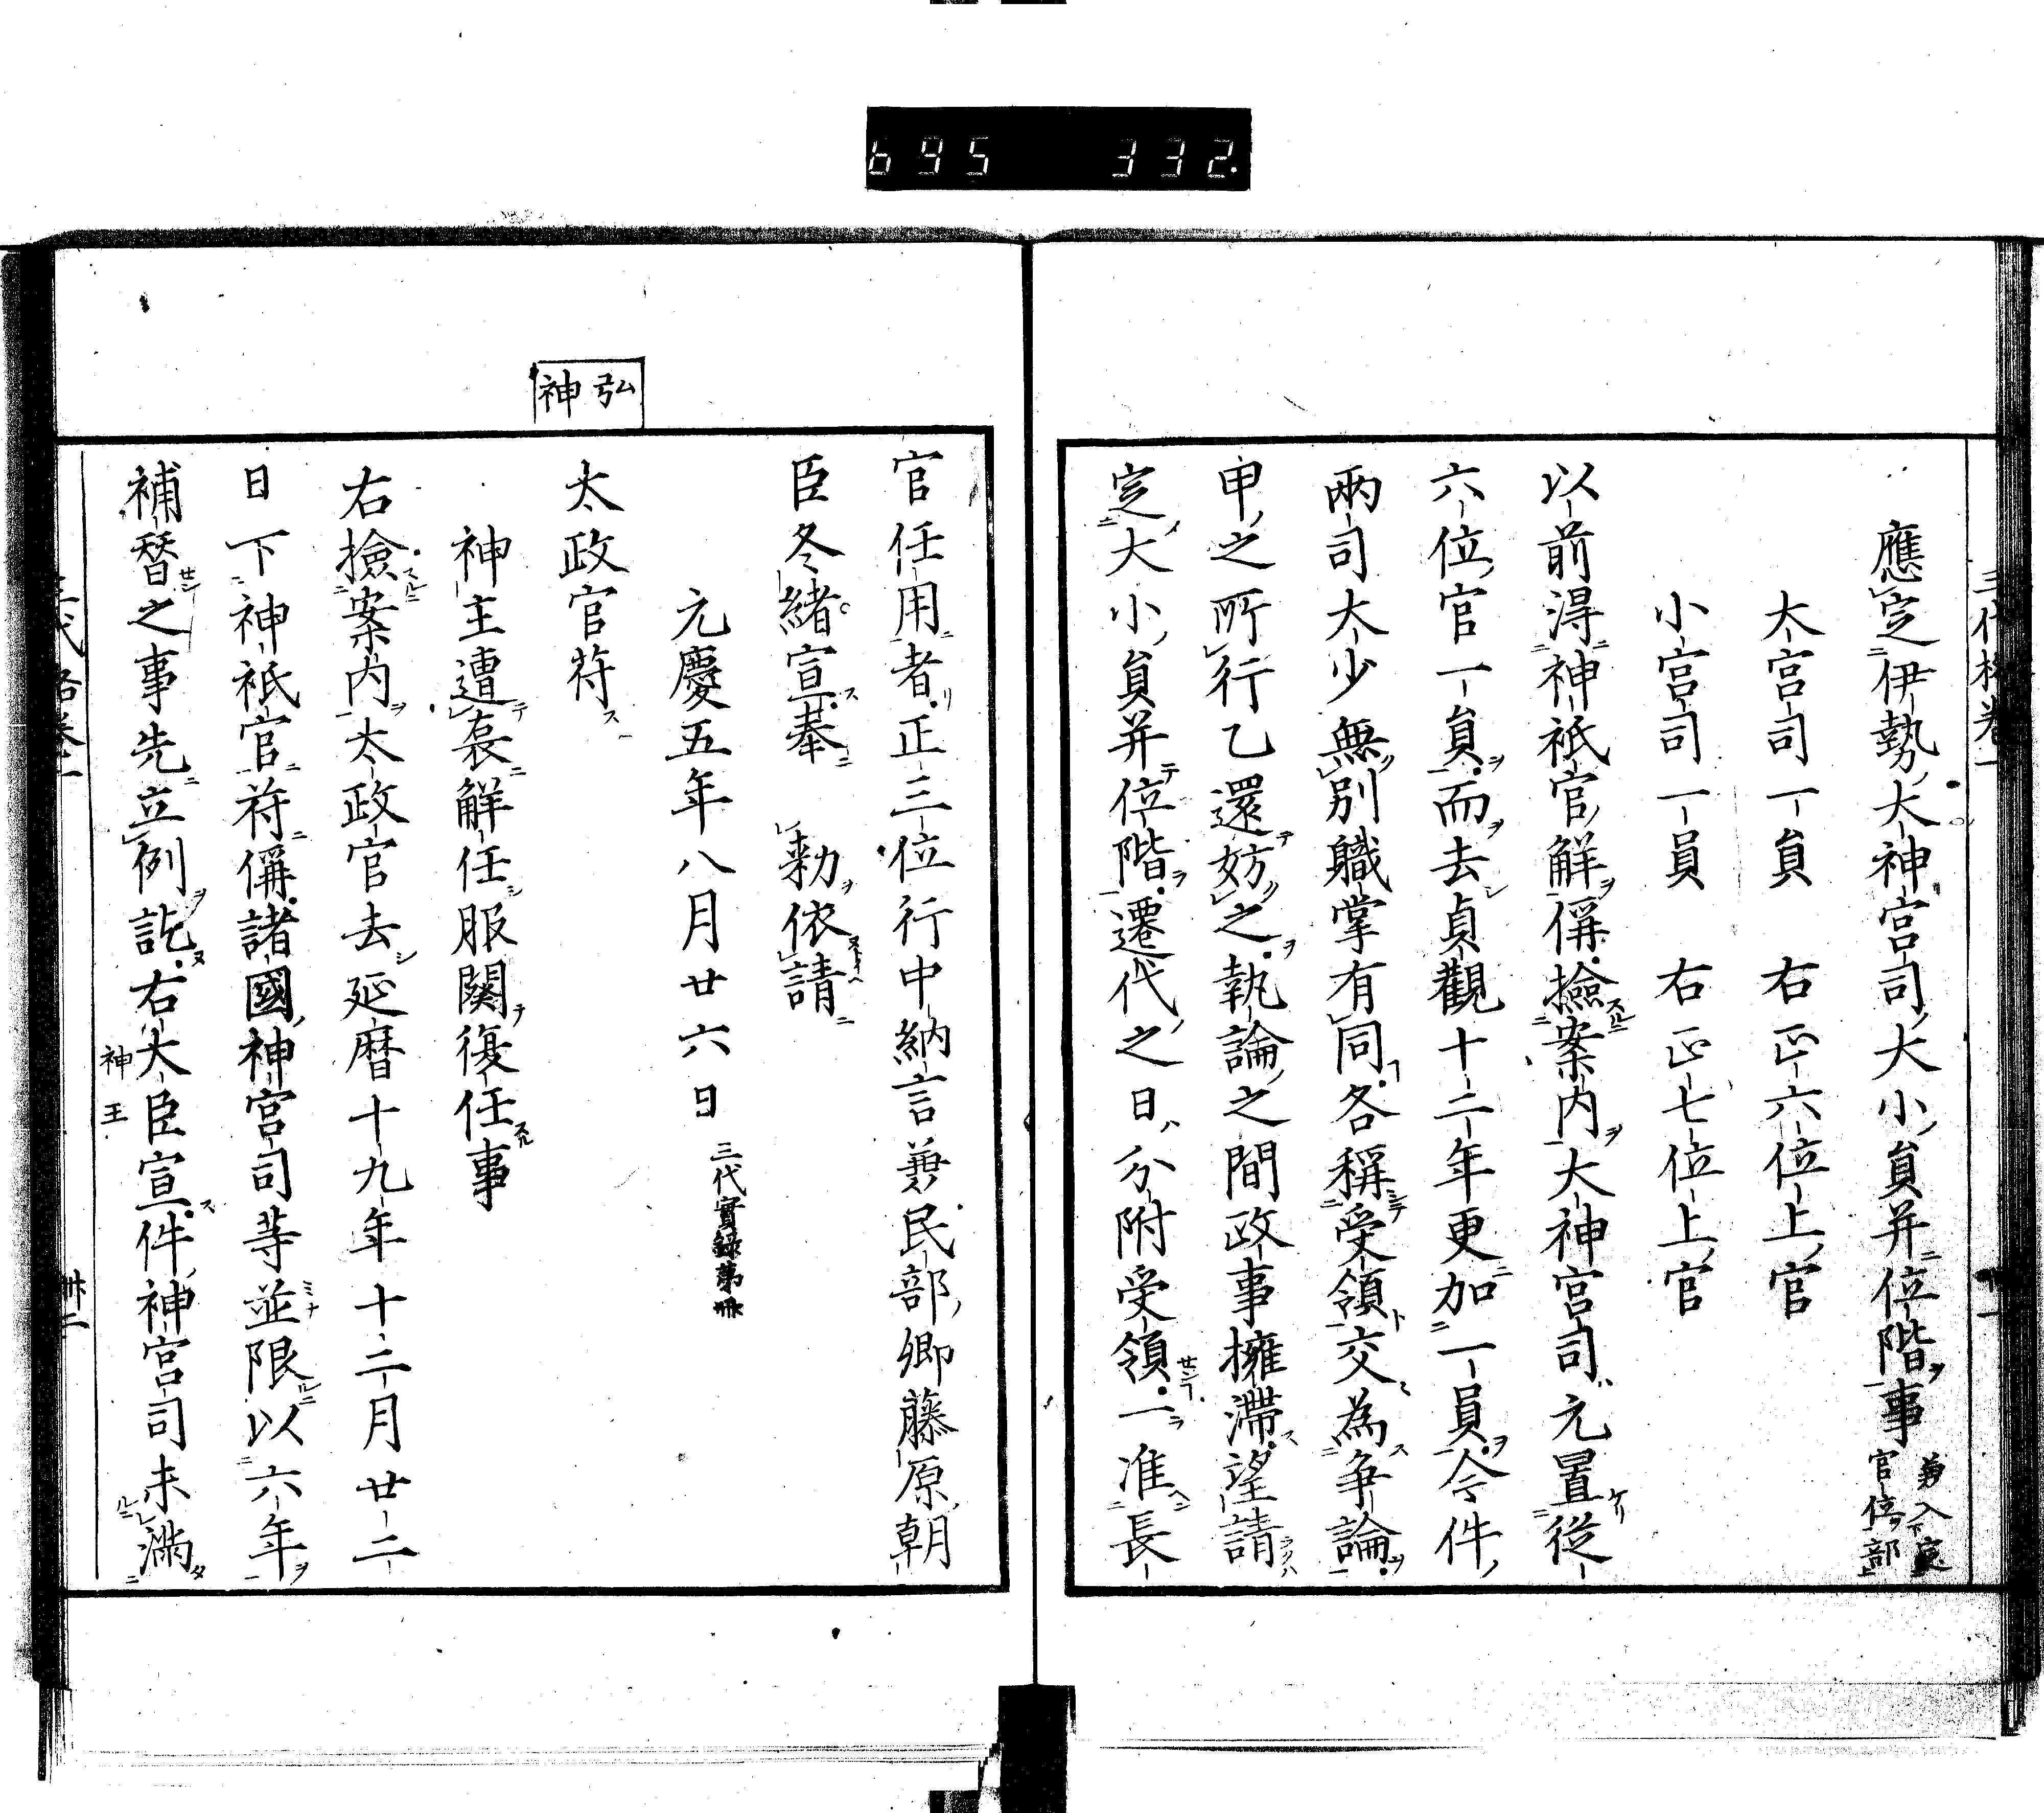 695 332.
三代格卷一
應定伊勢大神宮司大小員并位階事 兼入官位部
大宮司一員 右正六位上官
小宮司一員 右正七位上官
以前得神祇官解偁撿案内大神宮司元置從
六位官一員而去貞觀十二年更加一員今件
兩司大少無別職掌有同各稱受領交為争論
申之所行乙還妨之執論之間政事擁滯望請
定大小員并位階遷代之日分附受領一准長
官任用者正三位行中納言兼民部卿藤原朝
臣冬緒宣奉 勅依請
元慶五年八月廿六日 三代實録第卌
弘神
太政官符
神主遭喪解任服闋復任事
右撿案内太政官去延暦十九年十二月廿二
日下神祇官符偁諸國神宮司等並限以六年
補替之事先立例訖右大臣宣件神宮司未滿
神王
三代格卷一
卅二